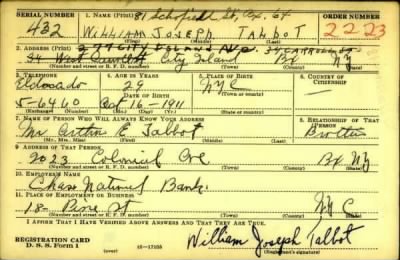 SERIAL NUMBER 1. NAME (Print) 81 Schofield St, Bx. 64 ORDER NUMBER
432 WILLIAM JOSEPH TALBOT 2223
(First) (Middle) (Last)
2. ADDRESS (Print)
City Island Bx NY
(Number and street or R. F. D. number) (Town) (County) (State)
3. TELEPHONE 4. AGE IN YEARS 5. PLACE OF BIRTH 6. COUNTRY OF CITIZENSHIP
Eldorado 29 NYC
DATE OF BIRTH (Town or county)
5-6460 Oct 16-1911
(Exchange) (Number) (Mo.) (Day) (Yr.) (State or country)
7. NAME OF PERSON WHO WILL ALWAYS KNOW YOUR ADDRESS 8. RELATIONSHIP OF THAT PERSON
Mr. Arthur E Talbot Brother
(Mr., Mrs., Miss) (First) (Middle) (Last)
9. ADDRESS OF THAT PERSON
2023 Colonial Ave Bx NY
(Number and street or R. F. D. number) (Town) (County) (State)
10. EMPLOYER'S NAME
Chase National Bank
11. PLACE OF EMPLOYMENT OR BUSINESS
18- Pine St NYC
(Number and street or R. F. D. number) (Town) (County) (State)
I AFFIRM THAT I HAVE VERIFIED ABOVE ANSWERS AND THAT THEY ARE TRUE.
REGISTRATION CARD
D. S. S. Form 1 16-17105 William Joseph Talbot
(Registrant's signature)